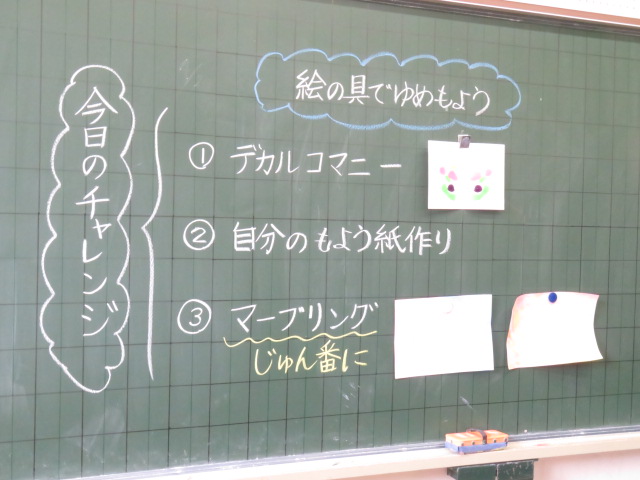 絵の具でゆめもよう
今日のチャレンジ
① デカルコマニー
② 自分のもよう紙作り
③ マーブリング
じゅん番に